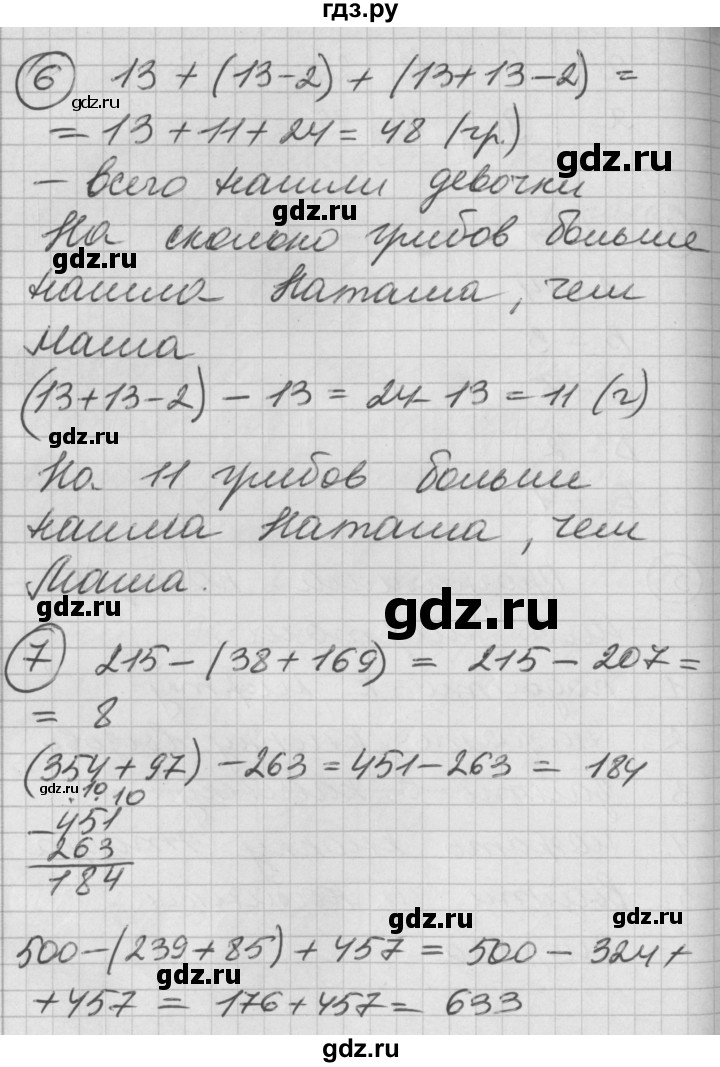 гдз.ру
6 13 + (13-2) + (13+13-2) =
= 13 + 11 + 24 = 48 (гр.)
gdz.ru
gdz.ru
– всего нашли девочки
gdz.ru
На сколько грибов больше
gdz.ru
нашла Наташа, чем
Маша
(13+13-2) – 13 = 24-13 = 11 (г)
gdz.ru
На 11 грибов больше
нашла Наташа, чем
Маша.
gdz.ru
gdz.ru
7 215 – (38 + 169) = 215 – 207 =
= 8
(354 + 97) – 263 = 451 – 263 = 184
gdz.ru
10 10
– 451
263
184
gdz.ru
gdz.ru
500 – (239 + 85) + 457 = 500 – 324 +
gdz.ru
+ 457 = 176 + 457 = 633
gdz.ru